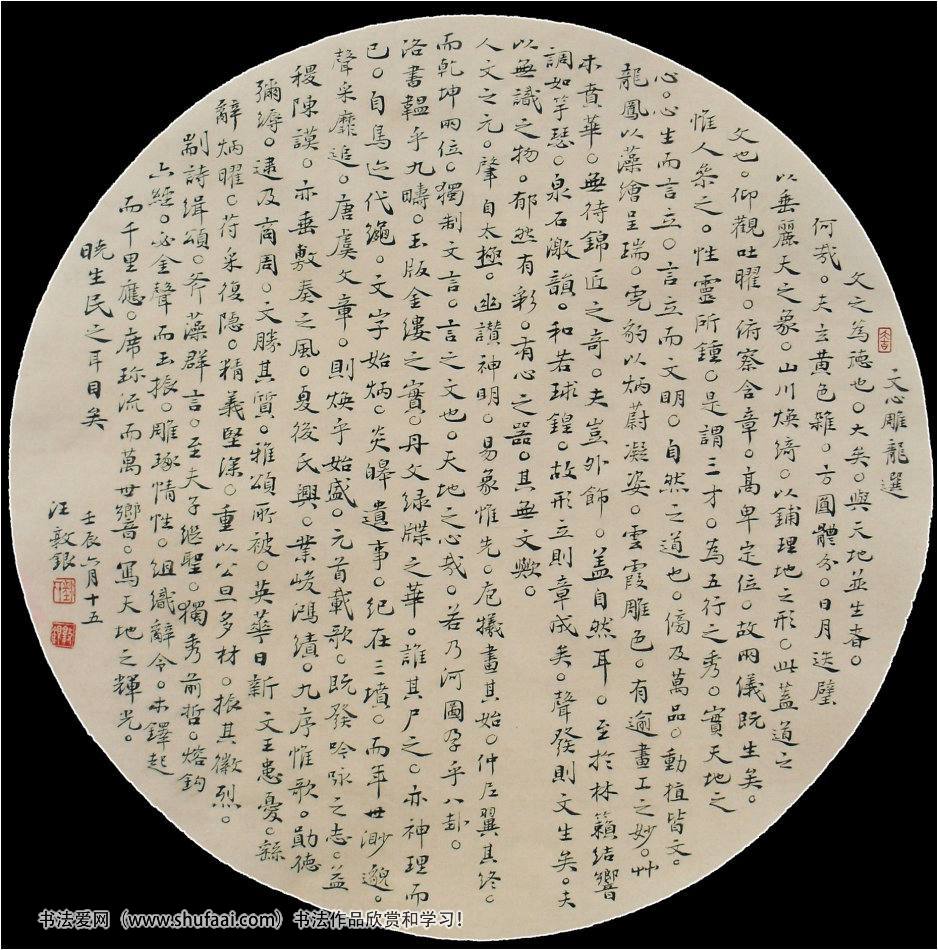 文心雕龍選
文之為德也。大矣。與天地並生者。
何哉。夫玄黄色雜。方圓體分。日月迭璧
以垂麗天之象。山川煥綺。以鋪理地之形。此蓋道之
文也。仰觀吐曜。俯察含章。高卑定位。故兩儀既生矣。
惟人參之。性靈所鍾。是謂三才。為五行之秀。實天地之
心。心生而言立。言立而文明。自然之道也。傍及萬品。動植皆文。
龍鳳以藻繪呈瑞。虎豹以炳蔚凝姿。雲霞雕色。有逾畫工之妙。艸
木賁華。無待錦匠之奇。夫豈外飾。蓋自然耳。至於林籟結響
調如竽瑟。泉石激韻。和若球鍠。故形立則章成矣。聲發則文生矣。夫
以無識之物。郁然有彩。有心之器。其無文歟。
人文之元。肇自太極。幽讚神明。易象惟先。庖犧畫其始。仲尼翼其終。
而乾坤兩位。獨制文言。言之文也。天地之心哉。若乃河圖孕乎八卦。
洛書韞乎九疇。玉版金鏤之實。丹文緑牒之華。誰其尸之。亦神理而
已。自鳥迹代繩。文字始炳。炎皞遺事。紀在三墳。而年世渺邈。
聲采靡追。唐虞文章。則煥乎始盛。元首載歌。既發吟咏之志。益
稷陳謨。亦垂敷奏之風。夏後氏興。業峻鴻績。九序惟歌。勛德
彌縟。逮及商周。文勝其質。雅頌所被。英華日新 文王患憂。繇
辭炳曜。符采復隐。精義堅深。重以公旦多材。振其徽烈。
剬詩緝頌。斧藻群言。至夫子继聖。獨秀前哲。熔鈎
六經。必金聲而玉振。雕琢情性。组織辭令。木鐸起
而千里應。席珍流而萬世響。寫天地之輝光。
曉生民之耳目矣
壬辰六月十五
汪敦銀
书法爱网（www.shufaai.com）书法作品欣赏和学习！